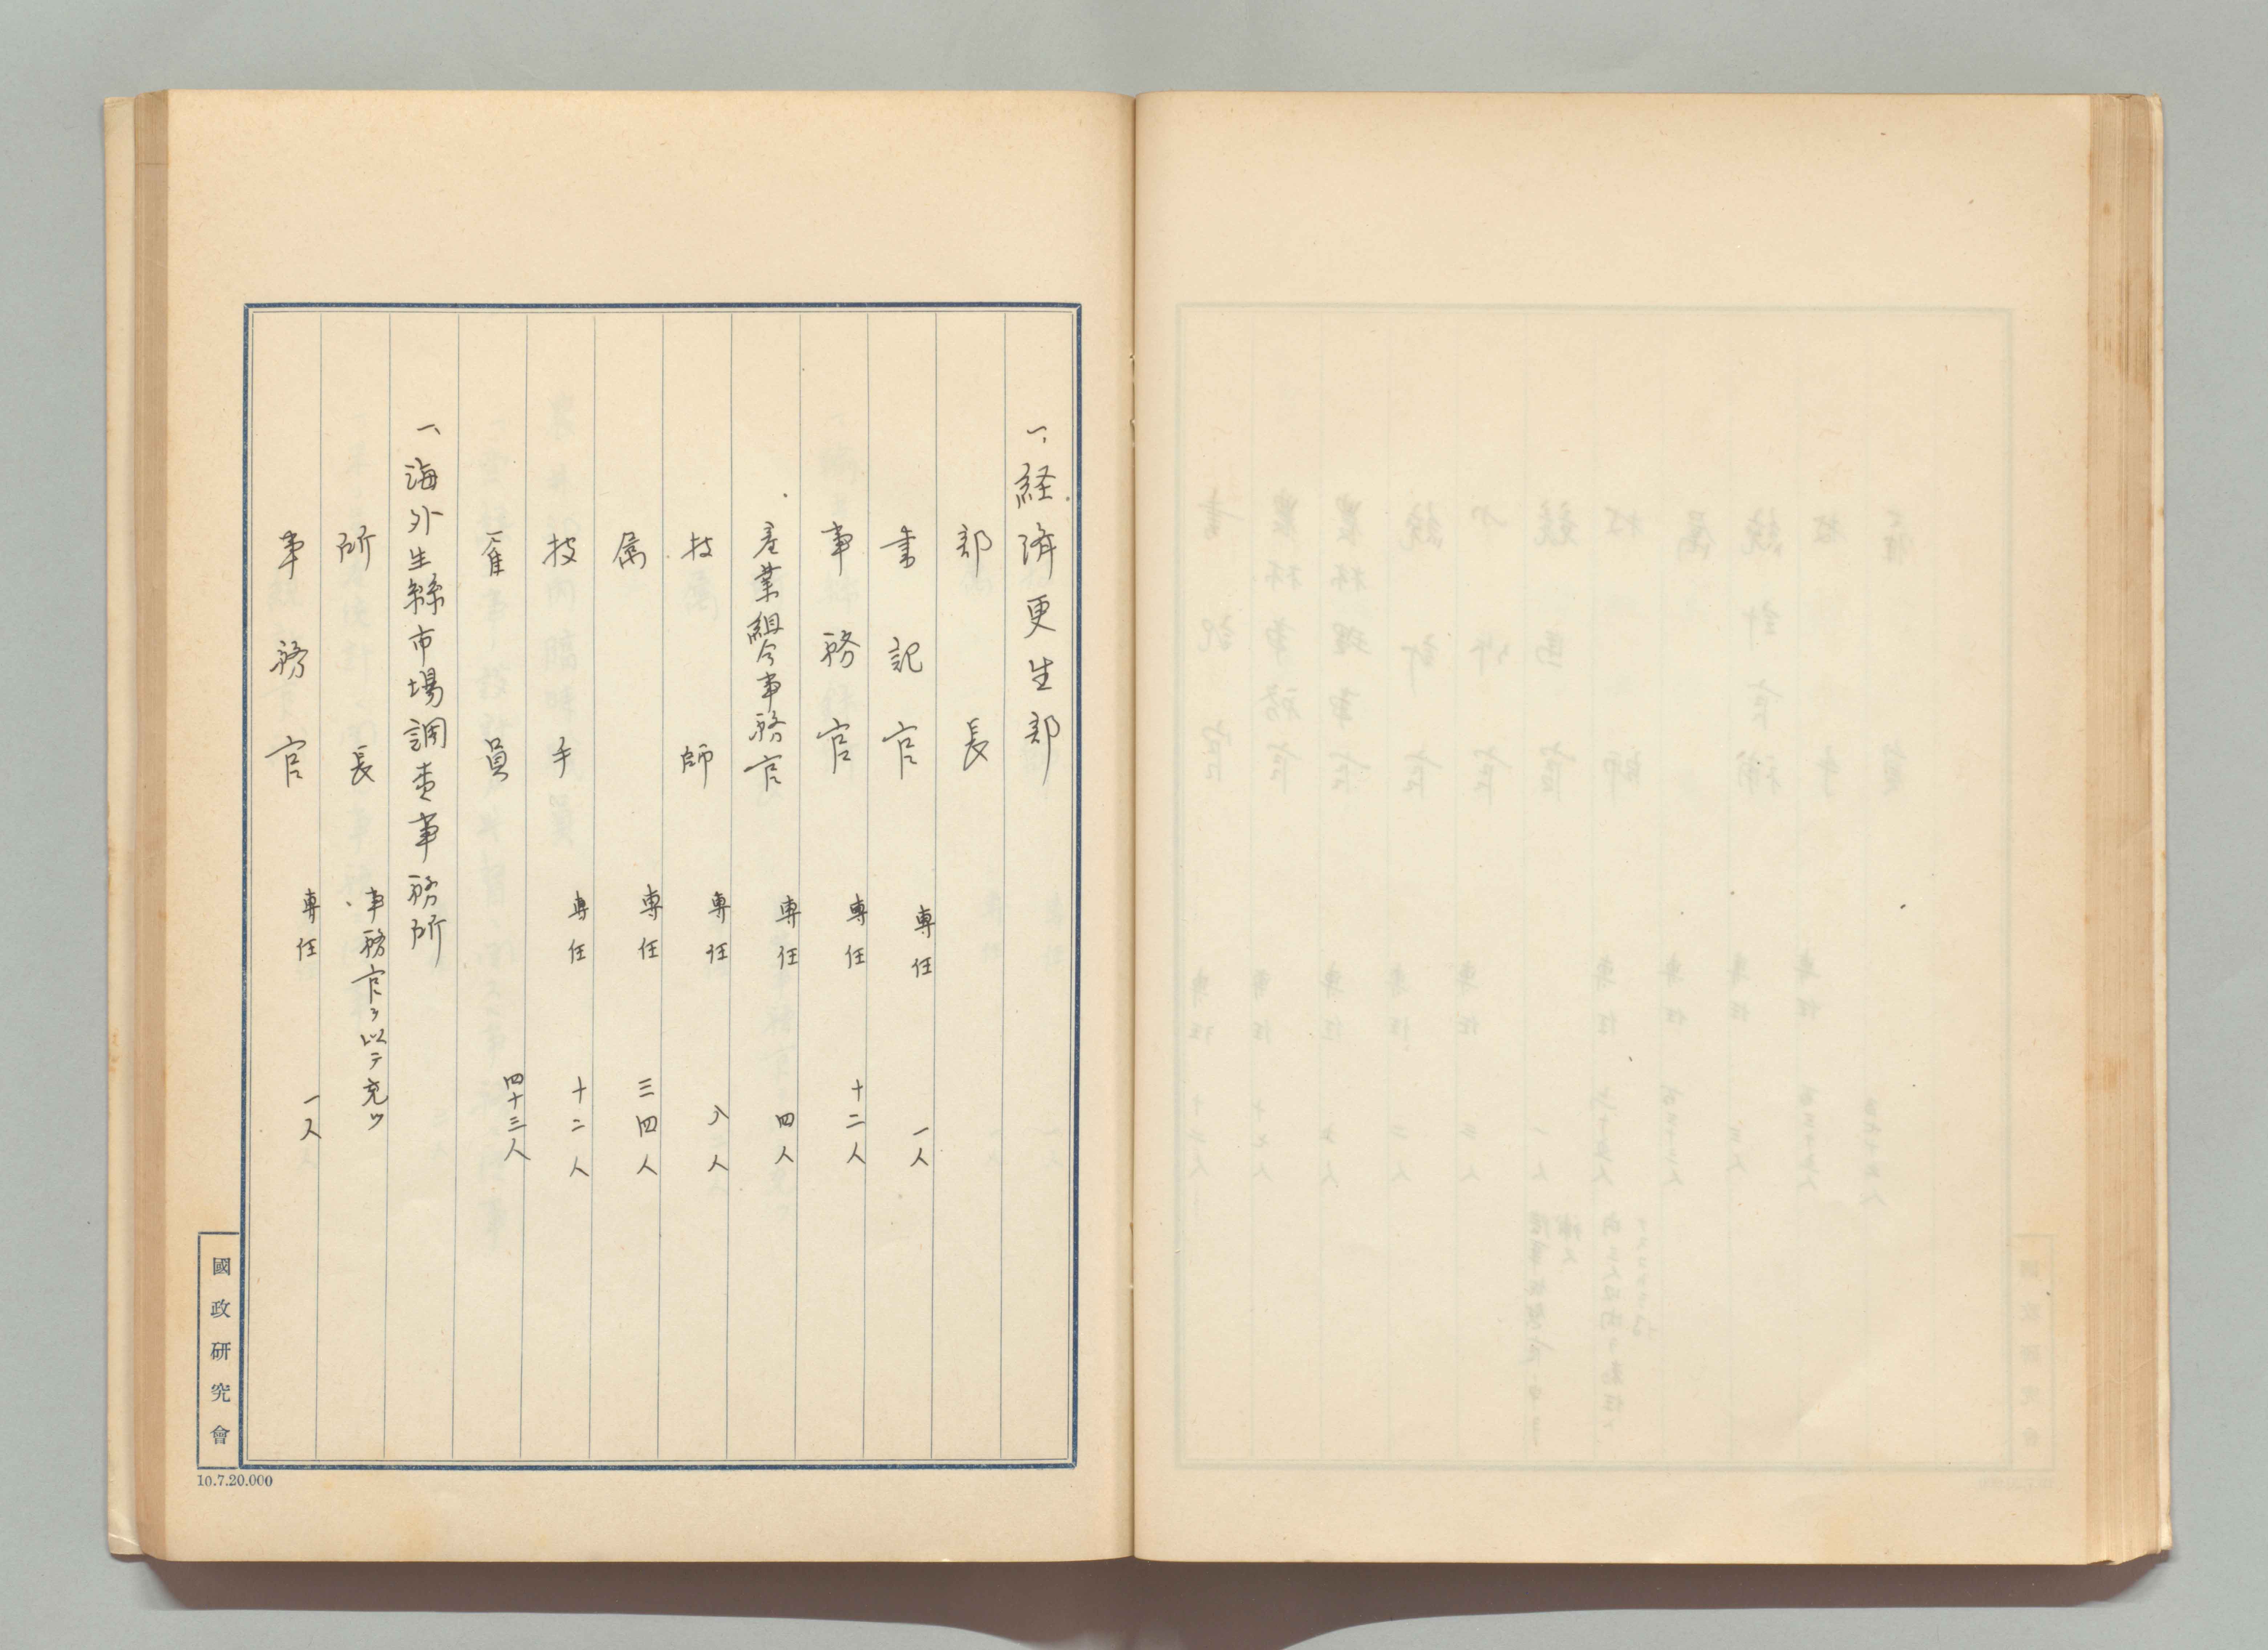 一、経済更生部
部長
書記官 専任 一人
事務官 専任 十二人
産業組合事務官 専任 四人
技師 専任 八人
属 専任 三四人
技手 専任 十二人
雇員 四十三人
一、海外生絲市場調査事務所
所長 事務官ヲ以テ充ツ
事務官 専任 一人
國政研究會
10.7.20.000